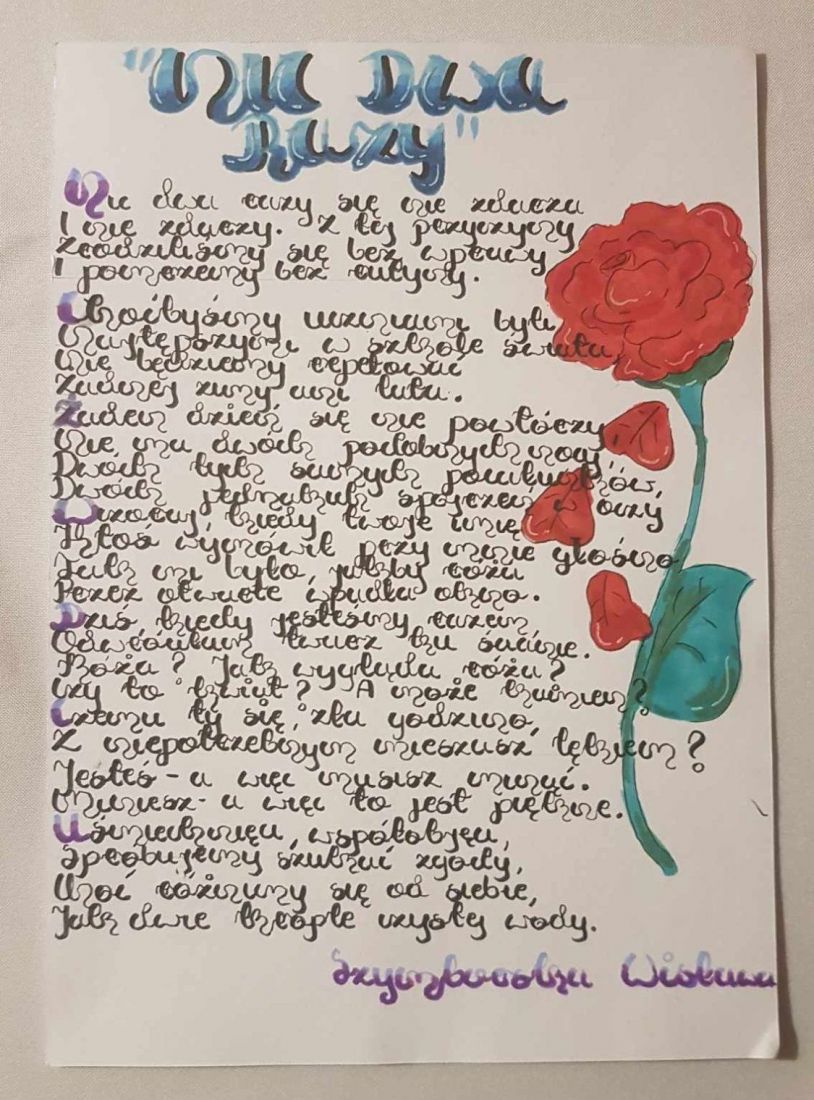 "Nic Dwa
Razy"
Nic dwa razy się nie zdarza
I nie zdarzy. Z tej przyczyny
Zrodziliśmy się bez wprawy
I pomrzemy bez rutyny.
Choćbyśmy uczniami byli
Najtępszymi w szkole świata,
Nie będziemy repetować
Żadnej zimy ani lata.
Żaden dzień się nie powtórzy,
Nie ma dwóch podobnych nocy,
Dwóch tych samych pocałunków,
Dwóch jednakich spojrzeń w oczy
Wczoraj, kiedy twoje imię
Ktoś wymówił przy mnie głośno
Tak mi było, jakby róża
Przez otwarte wpadła okno.
Dziś kiedy jesteśmy razem
Odwróciłam twarz ku ścianie.
Róża? Jak wygląda róża?
Czy to kwiat? A może kamień?
Czemu ty się, zła godzino,
Z niepotrzebnym mieszasz lękiem?
Jesteś - a więc musisz minąć.
Miniesz - a więc to jest piękne.
Uśmiechnięci, współobjęci,
Spróbujemy szukać zgody,
Choć różnimy się od siebie,
Jak dwie krople czystej wody.
Szymborska Wisława